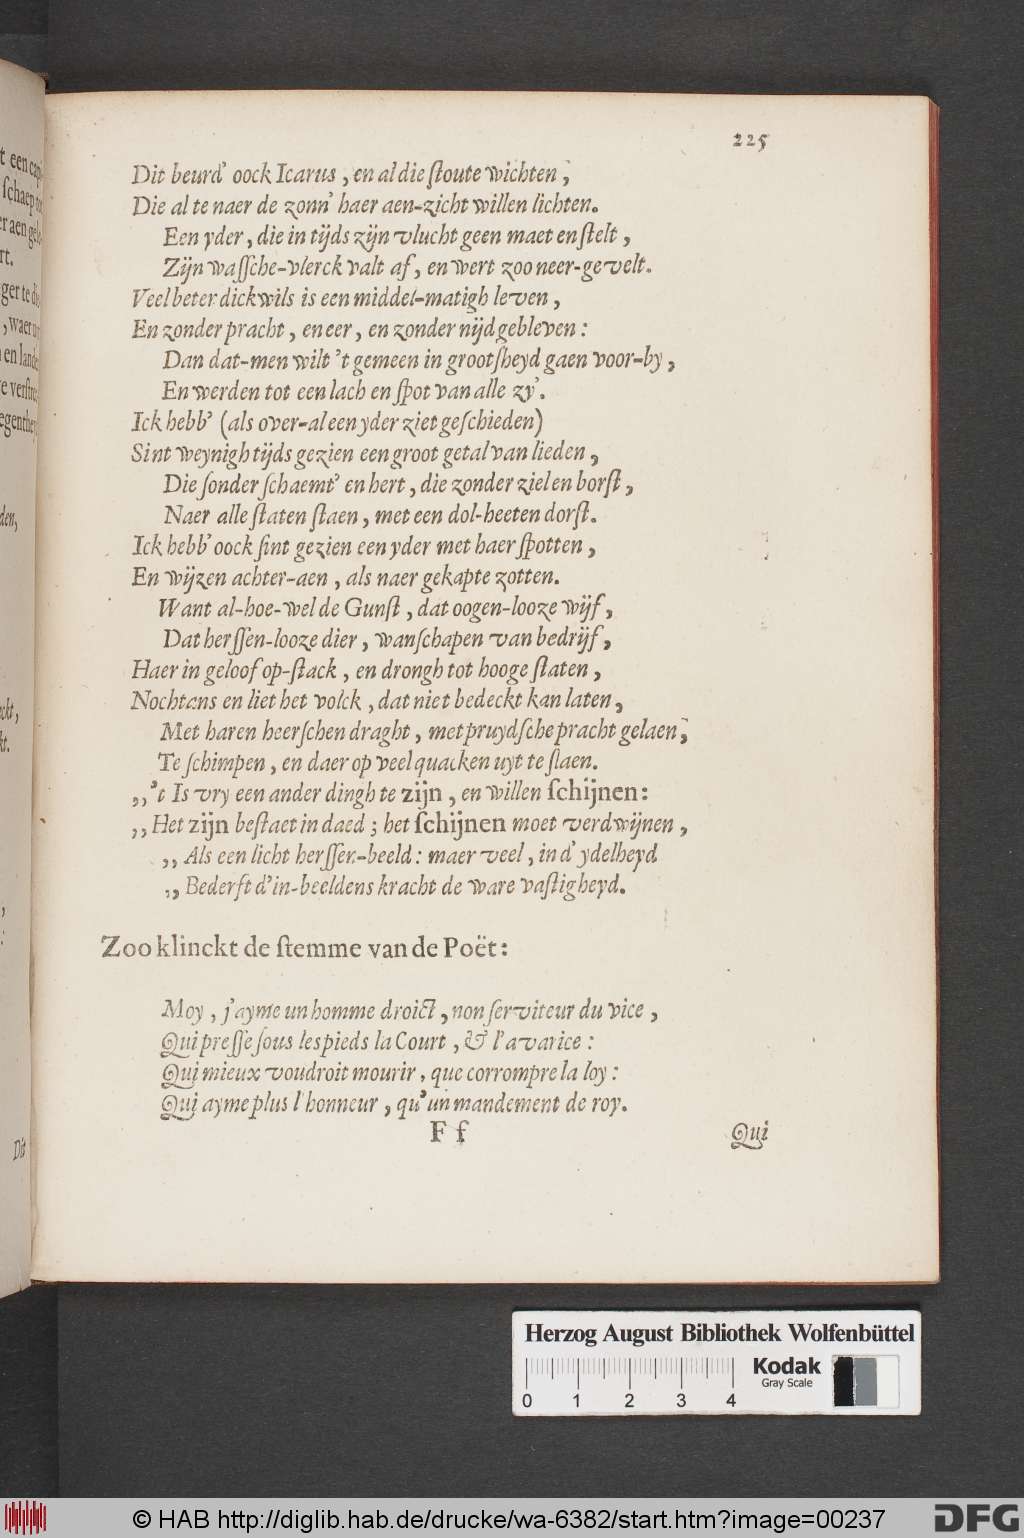 225
Dit beurd' oock Icarus, en al die ſtoute wichten,
Die al te naer de zonn' haer aen-zicht willen lichten.
Een yder, die in tijds zijn vlucht geen maet en ſtelt,
Zijn waſſche-vlerck valt af, en wert zoo neer-gevelt.
Veel beter dickwils is een middel-matigh leven,
En zonder pracht, en eer, en zonder nijd gebleven:
Dan dat-men wilt 't gemeen in grootſheyd gaen voor-by,
En werden tot een lach en ſpot van alle zy'.
Ick hebb' (als over-al een yder ziet geſchieden)
Sint weynigh tijds gezien een groot getal van lieden,
Die ſonder ſchaemt' en hert, die zonder ziel en borſt,
Naer alle ſtaten ſtaen, met een dol-heeten dorſt.
Ick hebb' oock ſint gezien een yder met haer ſpotten,
En wijzen achter-aen, als naer gekapte zotten.
Want al-hoe-wel de Gunſt, dat oogen-looze wijf,
Dat herſſen-looze dier, wanſchapen van bedrijf,
Haer in geloof op-ſtack, en drongh tot hooge ſtaten,
Nochtans en liet het volck, dat niet bedeckt kan laten,
Met haren heerſchen draght, met pruydſche pracht gelaen,
Te ſchimpen, en daer op veel quacken uyt te ſlaen.
,,'t Is vry een ander dingh te zijn, en willen ſchijnen:
,,Het zijn beſtaet in daed; het ſchijnen moet verdwijnen,
,, Als een licht herſſen-beeld: maer veel, in d' ydelheyd
,, Bederft d'in-beeldens kracht de ware vaſtigheyd.
Zoo klinckt de ſtemme van de Poët:
Moy, j'ayme un homme droict, non ſerviteur du vice,
Qui preſſe ſous les pieds la Court, & l'avarice:
Qui mieux voudroit mourir, que corrompre la loy:
Qui ayme plus l'honneur, qu'un mandement de roy.
F f
Qui
Herzog August Bibliothek Wolfenbüttel
Kodak
Gray Scale
0 1 2 3 4
© HAB http://diglib.hab.de/drucke/wa-6382/start.htm?image=00237
DFG